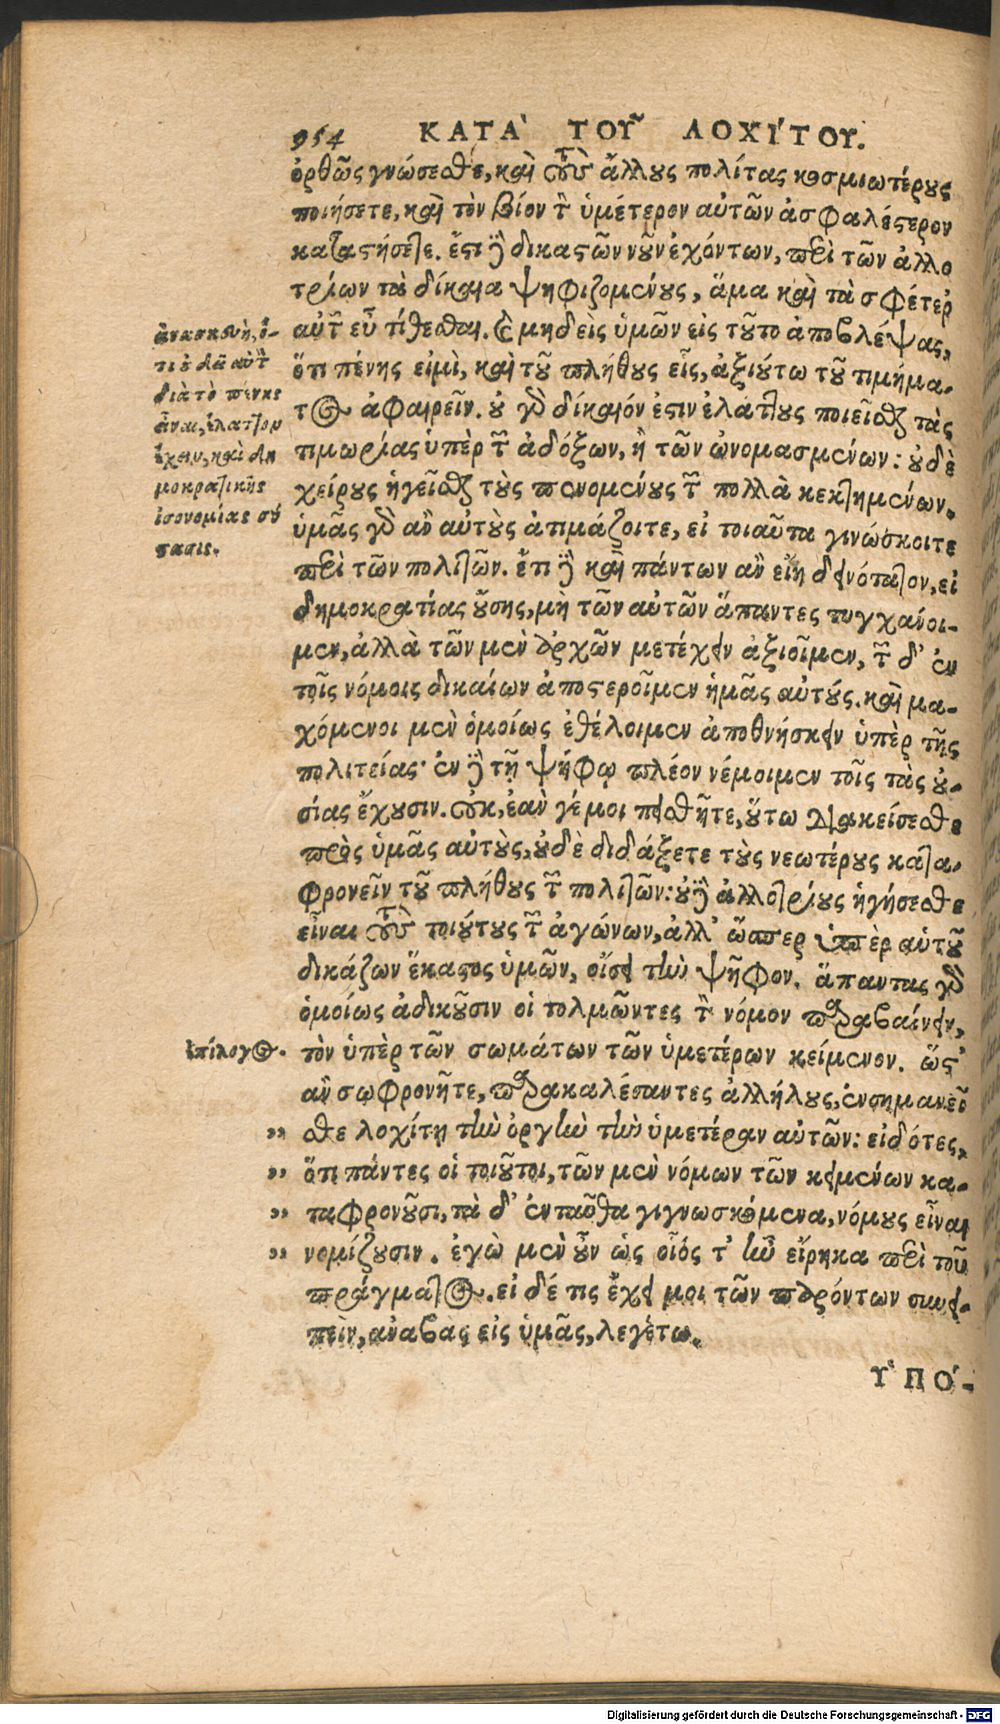 954 ΚΑΤΑ' ΤΟΥ῀ ΛΟΧΙ'ΤΟΥ.
ὀρθῶς γνώσεσθε, καὶ τοὺς ἄλλους πολίτας κοσμιωτέρους
ποιήσετε, καὶ τὸν βίον τὸν ὑμέτερον αὐτῶν ἀσφαλέστερον
καταστήσετε. ἔστι δὲ δικαστῶν νοῦν ἐχόντων, περὶ τῶν ἀλλο
τρίων τὰ δίκαια ψηφιζομένους, ἅμα καὶ τὰ σφέτερ
αὐτῶν εὖ τίθεσθαι. καὶ μηδεὶς ὑμῶν εἰς τοῦτο ἀποβλέψας,
ὅτι πένης εἰμὶ, καὶ τοῦ πλήθους εἷς, ἀξιούτω τοῦ τιμήμα-
τος ἀφαιρεῖν. οὐ γὰρ δίκαιόν ἐστιν ἐλάττους ποιεῖσθαι τὰς
τιμωρίας ὑπὲρ τῶν ἀδόξων, ἢ τῶν ὠνομασμένων: οὐδὲ
χείρους ἡγεῖσθαι τοὺς πενομένους τῶν πολλὰ κεκτημένων.
ὑμᾶς γὰρ ἂν αὐτοὺς ἀτιμάζοιτε, εἰ τοιαῦτα γινώσκοιτε
περὶ τῶν πολιτῶν. ἔτι δὲ καὶ πάντων ἂν εἴη δεινότατον, εἰ
δημοκρατίας οὔσης, μὴ τῶν αὐτῶν ἅπαντες τυγχάνοι-
μεν, ἀλλὰ τῶν μὲν ἀρχῶν μετέχειν ἀξιοῖμεν, τῶν δ' ἐν
τοῖς νόμοις δικαίων ἀποστεροῖμεν ἡμᾶς αὐτούς. καὶ μα-
χόμενοι μὲν ὁμοίως ἐθέλοιμεν ἀποθνήσκειν ὑπὲρ τῆς
πολιτείας· ἐν δὲ τῇ ψήφῳ πλέον νέμοιμεν τοῖς τὰς οὐ-
σίας ἔχουσιν. οὐκ, ἐὰν γέ μοι πείθητε, οὕτω διακείσεσθε
πρὸς ὑμᾶς αὐτοὺς, οὐδὲ διδάξετε τοὺς νεωτέρους κατα-
φρονεῖν τοῦ πλήθους τῶν πολιτῶν: οὐδὲ ἀλλοτρίους ἡγήσεσθε
εἶναι τοὺς τοιούτους τῶν ἀγώνων, ἀλλ' ὥσπερ ὑπὲρ αὑτοῦ
δικάζων ἕκαστος ὑμῶν, οἴσει τὴν ψῆφον. ἅπαντας γὰρ
ὁμοίως ἀδικοῦσιν οἱ τολμῶντες τὸν νόμον παραβαίνειν,
τὸν ὑπὲρ τῶν σωμάτων τῶν ὑμετέρων κείμενον. ὥστ'
ἂν σωφρονῆτε, παρακαλέσαντες ἀλλήλους, ἐνσημανεῖ
σθε λοχίτῃ τὴν ὀργὴν τὴν ὑμετέραν αὐτῶν: εἰδότες,
ὅτι πάντες οἱ τοιοῦτοι, τῶν μὲν νόμων τῶν κειμένων κα-
ταφρονοῦσι, τὰ δ' ἐνταῦθα γιγνωσκόμενα, νόμους εἶναι
νομίζουσιν. ἐγὼ μὲν οὖν ὡς οἷός τ' ἦν εἴρηκα περὶ τοῦ
πράγματος. εἰ δέ τις ἔχει μοι τῶν παρόντων συνει-
πεῖν, ἀναβὰς εἰς ὑμᾶς, λεγέτω.
ΥΠΟ'-
ἀνασκευὴ, ὅ-
τι οὐ δεῖ αὐτὸν
διὰ τὸ πένης
εἶναι, ἔλαττον
ἔχειν, καὶ δη
μοκρατικῆς
ἰσονομίας σύ
στασις.
ἐπίλογος.